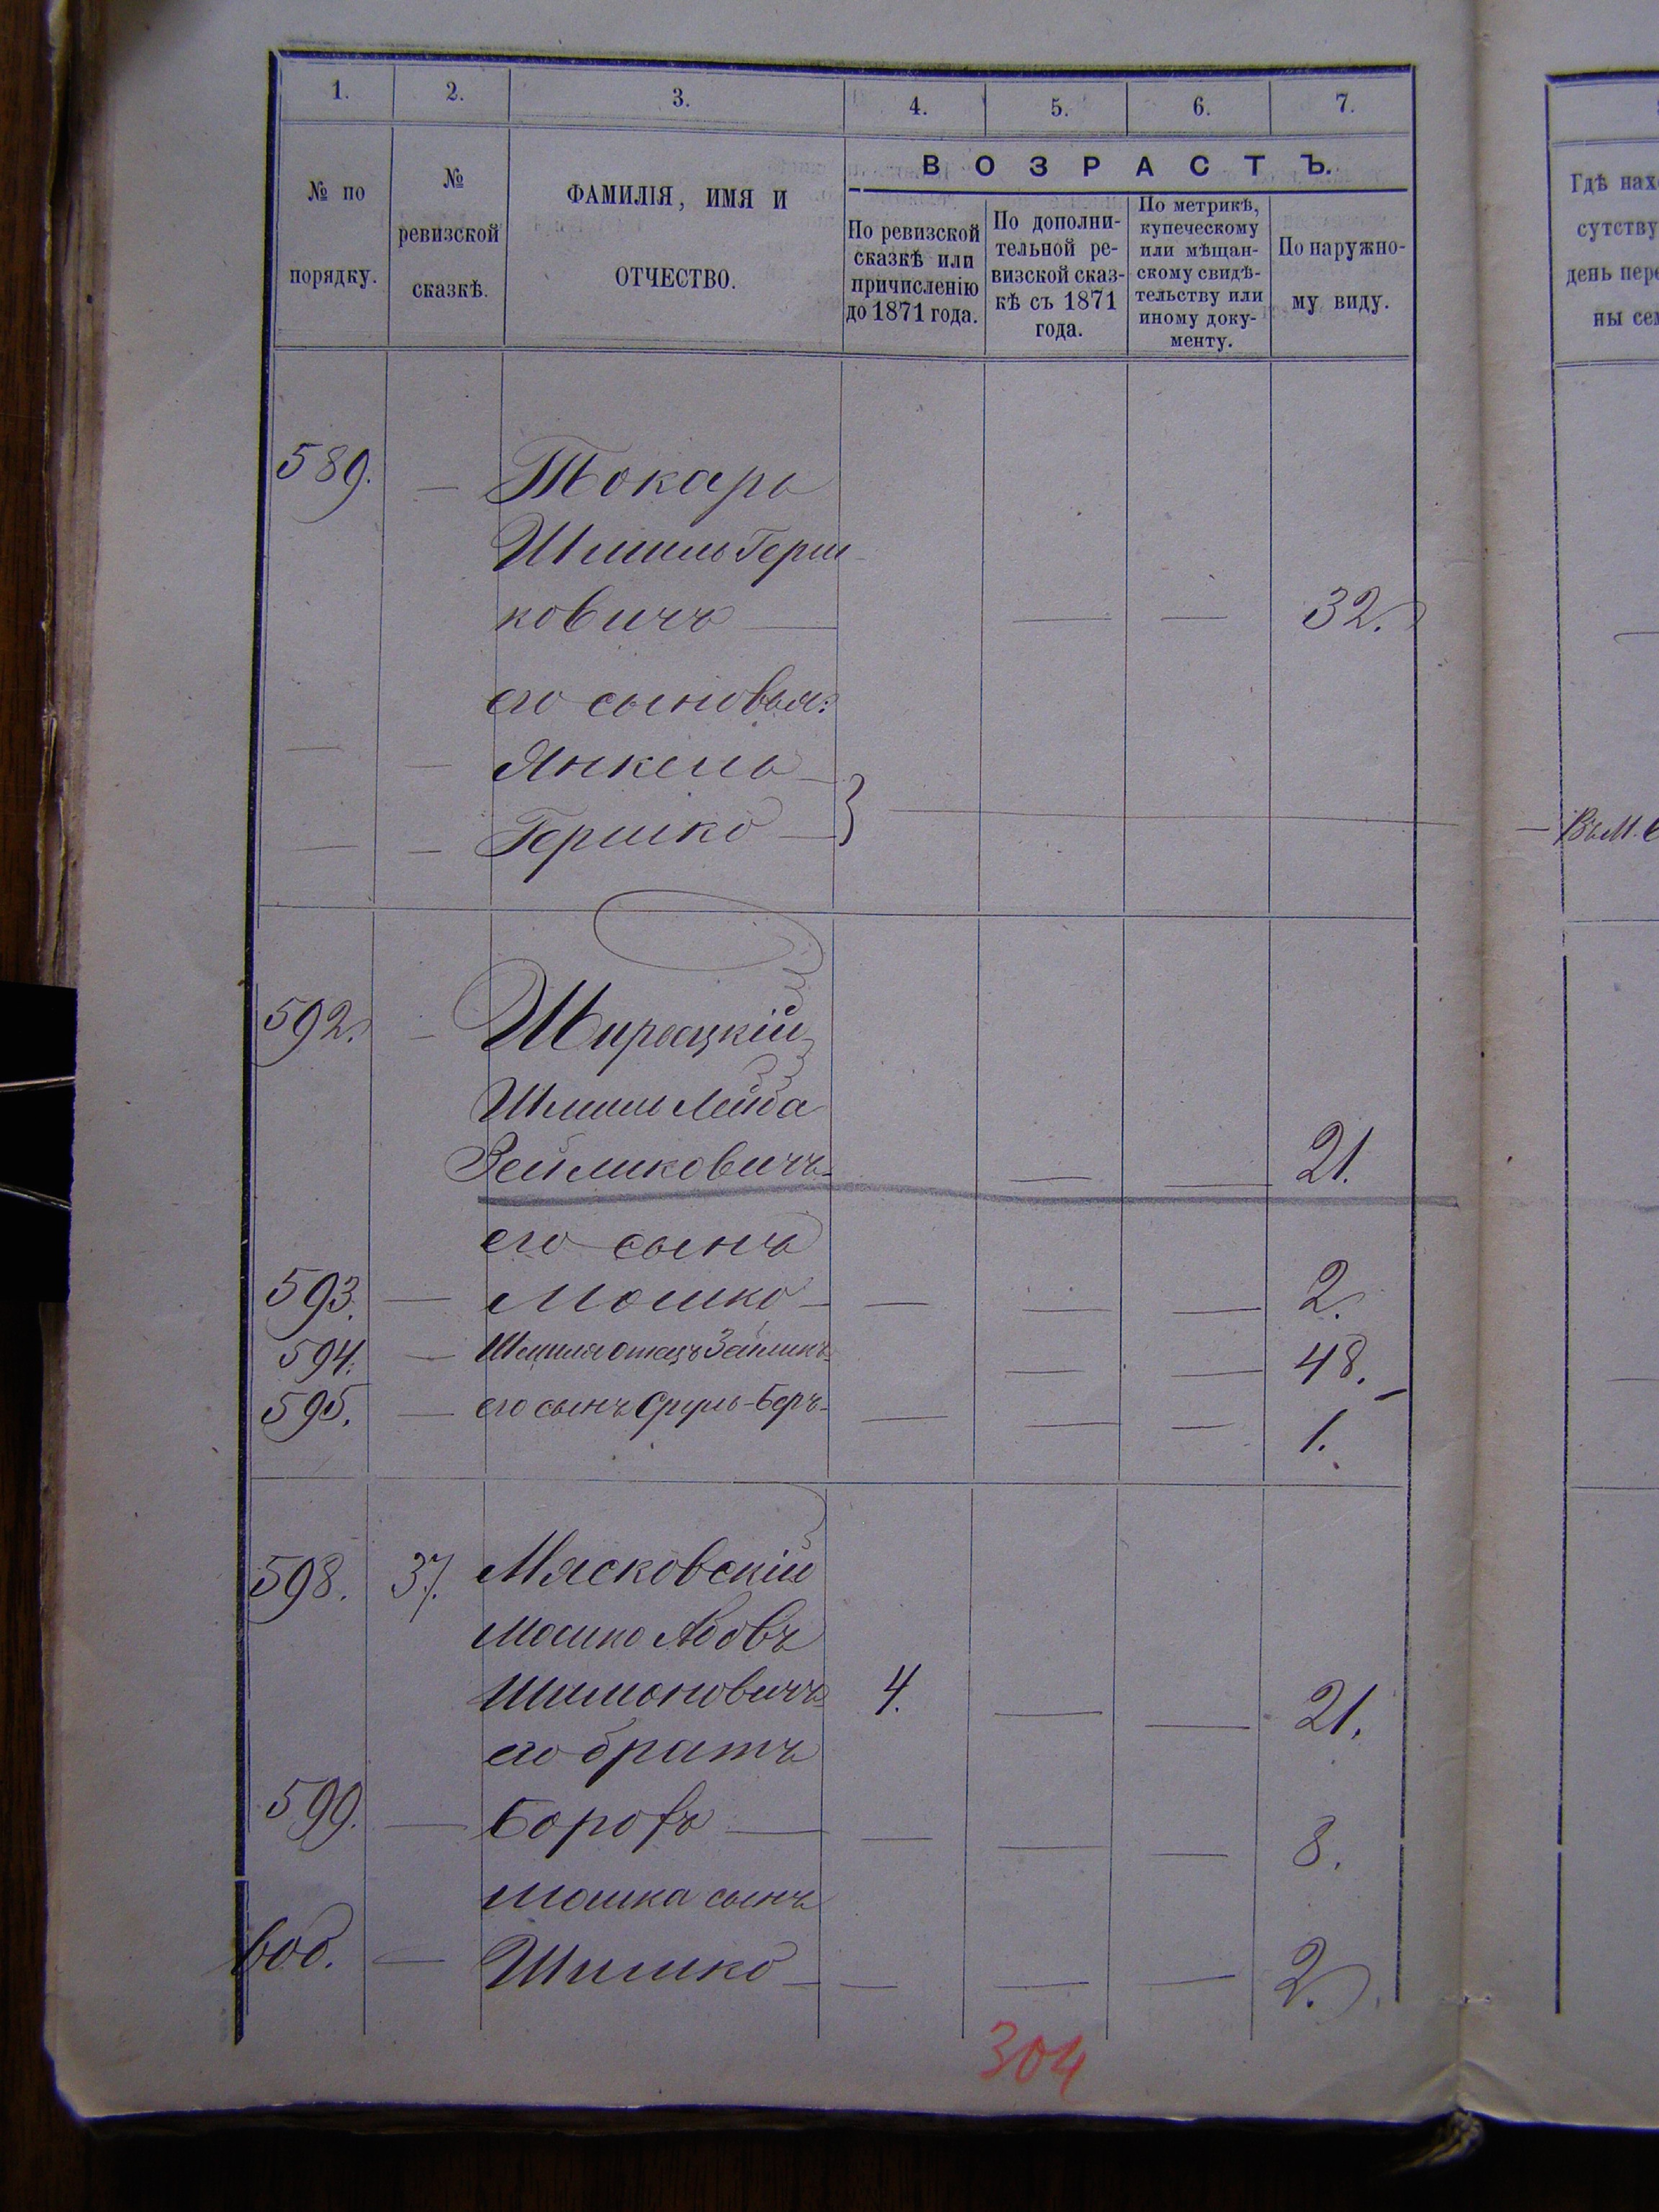 1. 2. 3. 4. 5. 6. 7.
№ по порядку.
№ ревизской сказкѣ.
ФАМИЛІЯ, ИМЯ И ОТЧЕСТВО.
ВОЗРАСТЪ.
По ревизской сказкѣ или причисленію до 1871 года.
По дополнительной ревизской сказкѣ съ 1871 года.
По метрикѣ, купеческому или мѣщанскому свидѣтельству или иному документу.
По наружному виду.
Гдѣ нахо
сутству
день пере
ны сем
589. — Токарь
Шмиль Герш
ковичъ — — — 32.
его сыновья:
— — Янкель —
— — Гершко — }
— Въ М.
592. —
Шмиль Лейба
Зейликовичъ — — 21.
его сынъ
593. — Мошко — — — — 2.
594. — Шмиля отецъ Зейликъ — — 48.
595. — его сынъ Сруль-Беръ — — — — 1.
598. 37. Мясковскій
Мошко Абовъ
Шимоновичъ 4. — — 21.
его братъ
599. — — — — — 8.
Мошка сынъ
600. — Шимко — — — — 2.
304